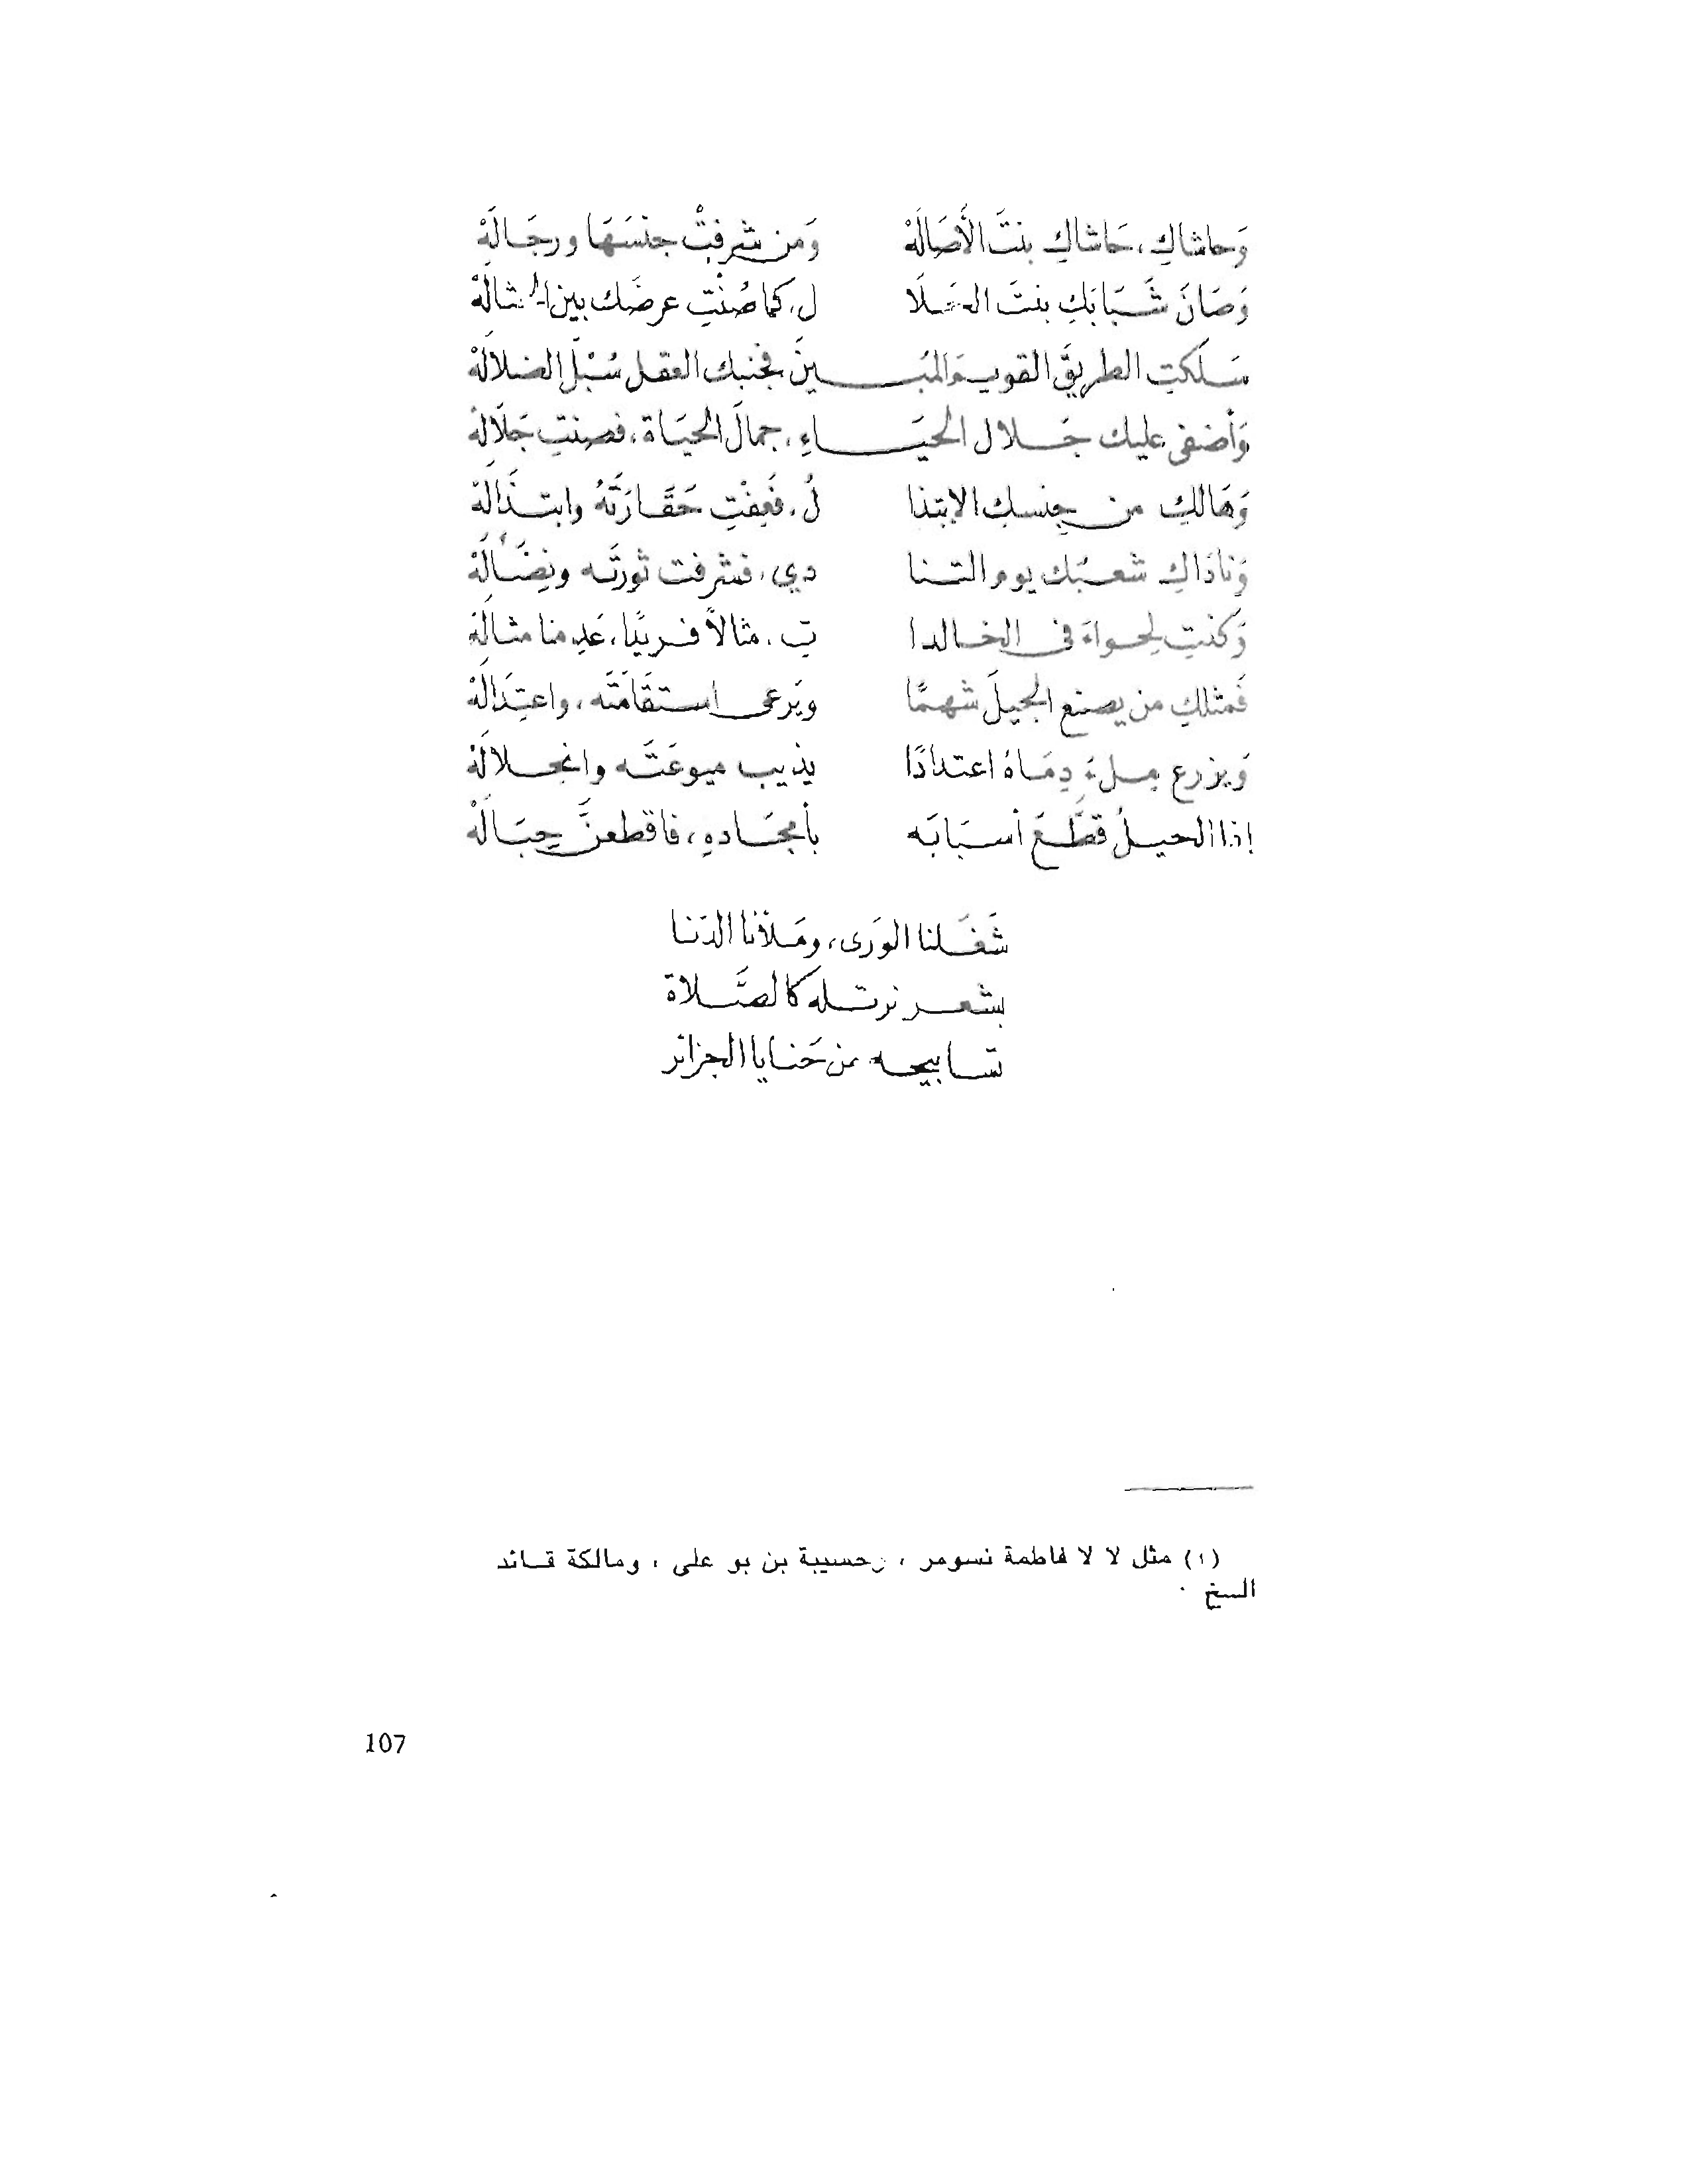 وَحاشاكِ، حَاشاكِ بنتَ الأَصَالَهْ وَمن شرفتْ جنْسَهَا ورجَالَهْ
وَصَانَ شَبَابَكِ بنتَ الحَلَا لِ، كما صُنْتِ عرضَك بين
سَلَكتِ الطريقَ القويـمَ المُبـينَ فجنبك العقل سُبْلَ الضلالَهْ
وَأضفى عليك جَلال الحيَاءِ، جمالَ الحيَاة، فصنتِ جَلَالهْ
وَهَالكِ من جنسكِ الابتذا لُ، فَعِفْتِ حَقَارَتَهُ وابتذَالَهْ
وَنادَاكِ شعبُك يوم التنا دي، فشرفت ثورتَه ونِضَالَهْ
وَكنتِ لحواءَ في الخالدا تِ، مثالاً فريدًا، عَدِمنا مثالَهْ
فَمثلكِ من يصنع الجيلَ شهمًا ويَرعى استقَامَتَه، واعتِدَالَهْ
وَيزرع مِلءَ دِمَاهُ اعتدادًا يذيب ميوعَتَه وانحلالَهْ
إذا الجيلُ قطَّعَ أسبَابَه بأمجَادهِ، فاقطعنَّ حِبَالَهْ
شَغَلنا الوَرى، ومَلأنا الدّنا
بشعر نرتله كالصَّلاة
تسابيحه من حَنايا الجزائر
(١) مثل لا لا فاطمة نسومر ، وحسيبة بن بو على ، ومالكة قائد
السخ .
107